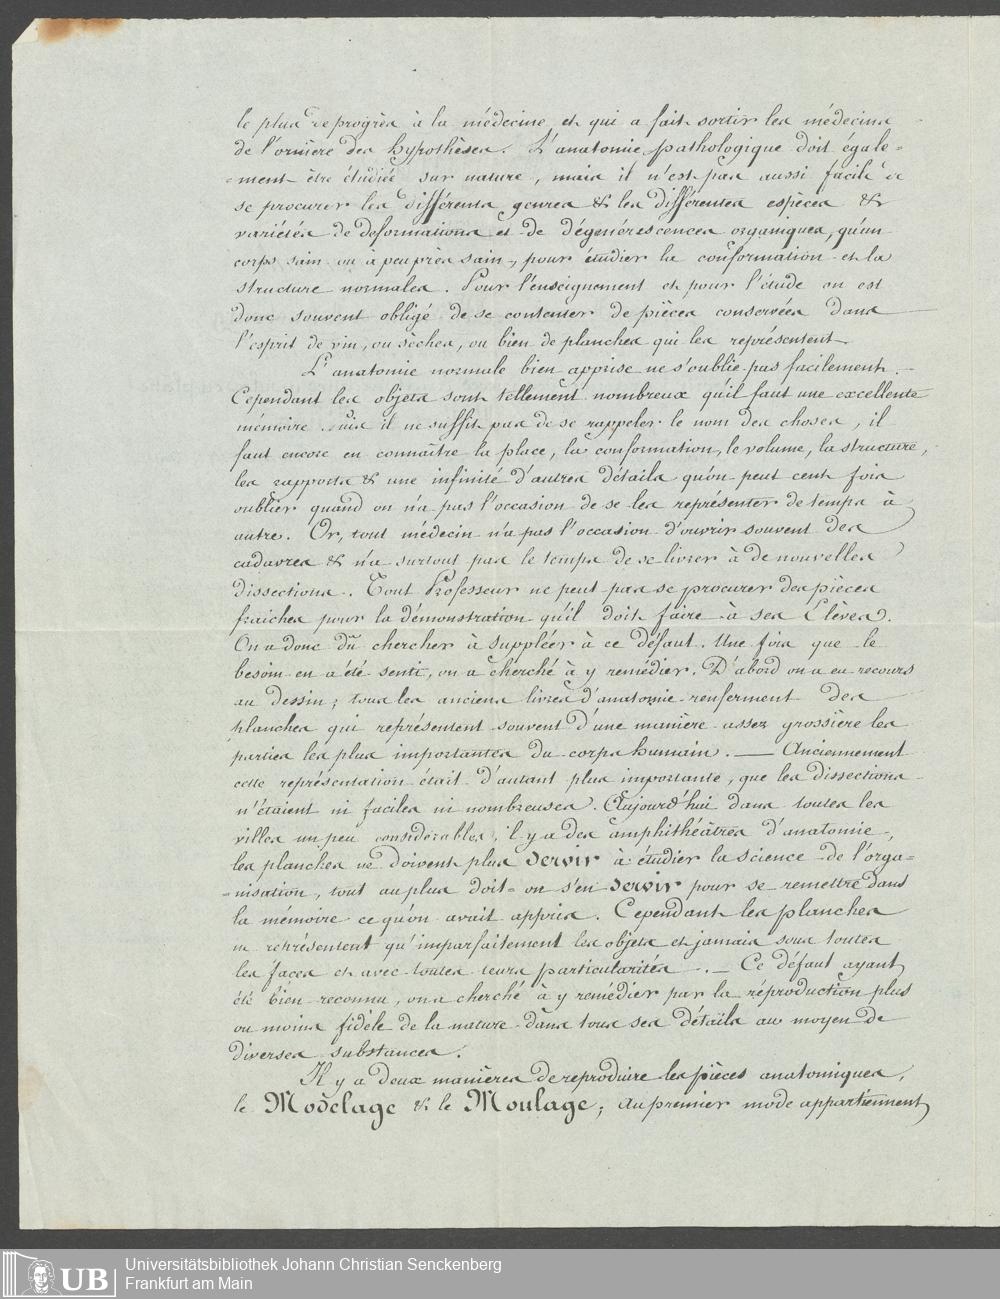 le plus de progrès à la médecine et qui a fait sortir les médecins
de l'ornière des hypothèses. L'anatomie pathologique doit égale-
-ment être étudiée sur nature, mais il n'est pas aussi facile de
se procurer les différents genres & les différentes espèces &
variétés de déformations et de dégénérescences organiques, qu'un
corps sain ou à peu près sain, pour étudier la conformation et la
structure normales. Pour l'enseignement et pour l'étude on est
donc souvent obligé de se contenter de pièces conservées dans
l'esprit de vin, ou sèches, ou bien de planches qui les représentent.
L'anatomie normale bien apprise ne s'oublie pas facilement.
Cependant les objets sont tellement nombreux qu'il faut une excellente
mémoire. Puis il ne suffit pas de se rappeler le nom des choses, il
faut encore en connaître la place, la conformation, le volume, la structure,
les rapports & une infinité d'autres détails qu'on peut cent fois
oublier quand on n'a pas l'occasion de se les représenter de temps à
autre. Or, tout médecin n'a pas l'occasion d'ouvrir souvent des
cadavres & n'a surtout pas le temps de se livrer à de nouvelles
dissections. Tout Professeur ne peut pas se procurer des pièces
fraîches pour la démonstration qu'il doit faire à ses Elèves.
On a donc dû chercher à suppléer à ce défaut. Une fois que le
besoin en a été senti, on a cherché à y remédier. D'abord on a eu recours
au dessin; tous les anciens livres d'anatomie renferment des
planches qui représentent souvent d'une manière assez grossière les
parties les plus importantes du corps humain. — Anciennement
cette représentation était d'autant plus importante, que les dissections
n'étaient ni faciles ni nombreuses. Aujourd'hui dans toutes les
villes un peu considérables, il y a des amphithéâtres d'anatomie,
les planches ne doivent plus servir à étudier la science de l'orga-
-nisation, tout au plus doit-on s'en servir pour se remettre dans
la mémoire ce qu'on avait appris. Cependant les planches
ne représentent qu'imparfaitement les objets et jamais sous toutes
les faces et avec toutes leurs particularités. — Ce défaut ayant
été bien reconnu, on a cherché à y remédier par la réproduction plus
ou moins fidèle de la nature dans tous ses détails au moyen de
diverses substances.
Il y a deux manières de reproduire les pièces anatomiques,
le Modelage & le Moulage; au premier mode appartiennent
UB
Universitätsbibliothek Johann Christian Senckenberg
Frankfurt am Main